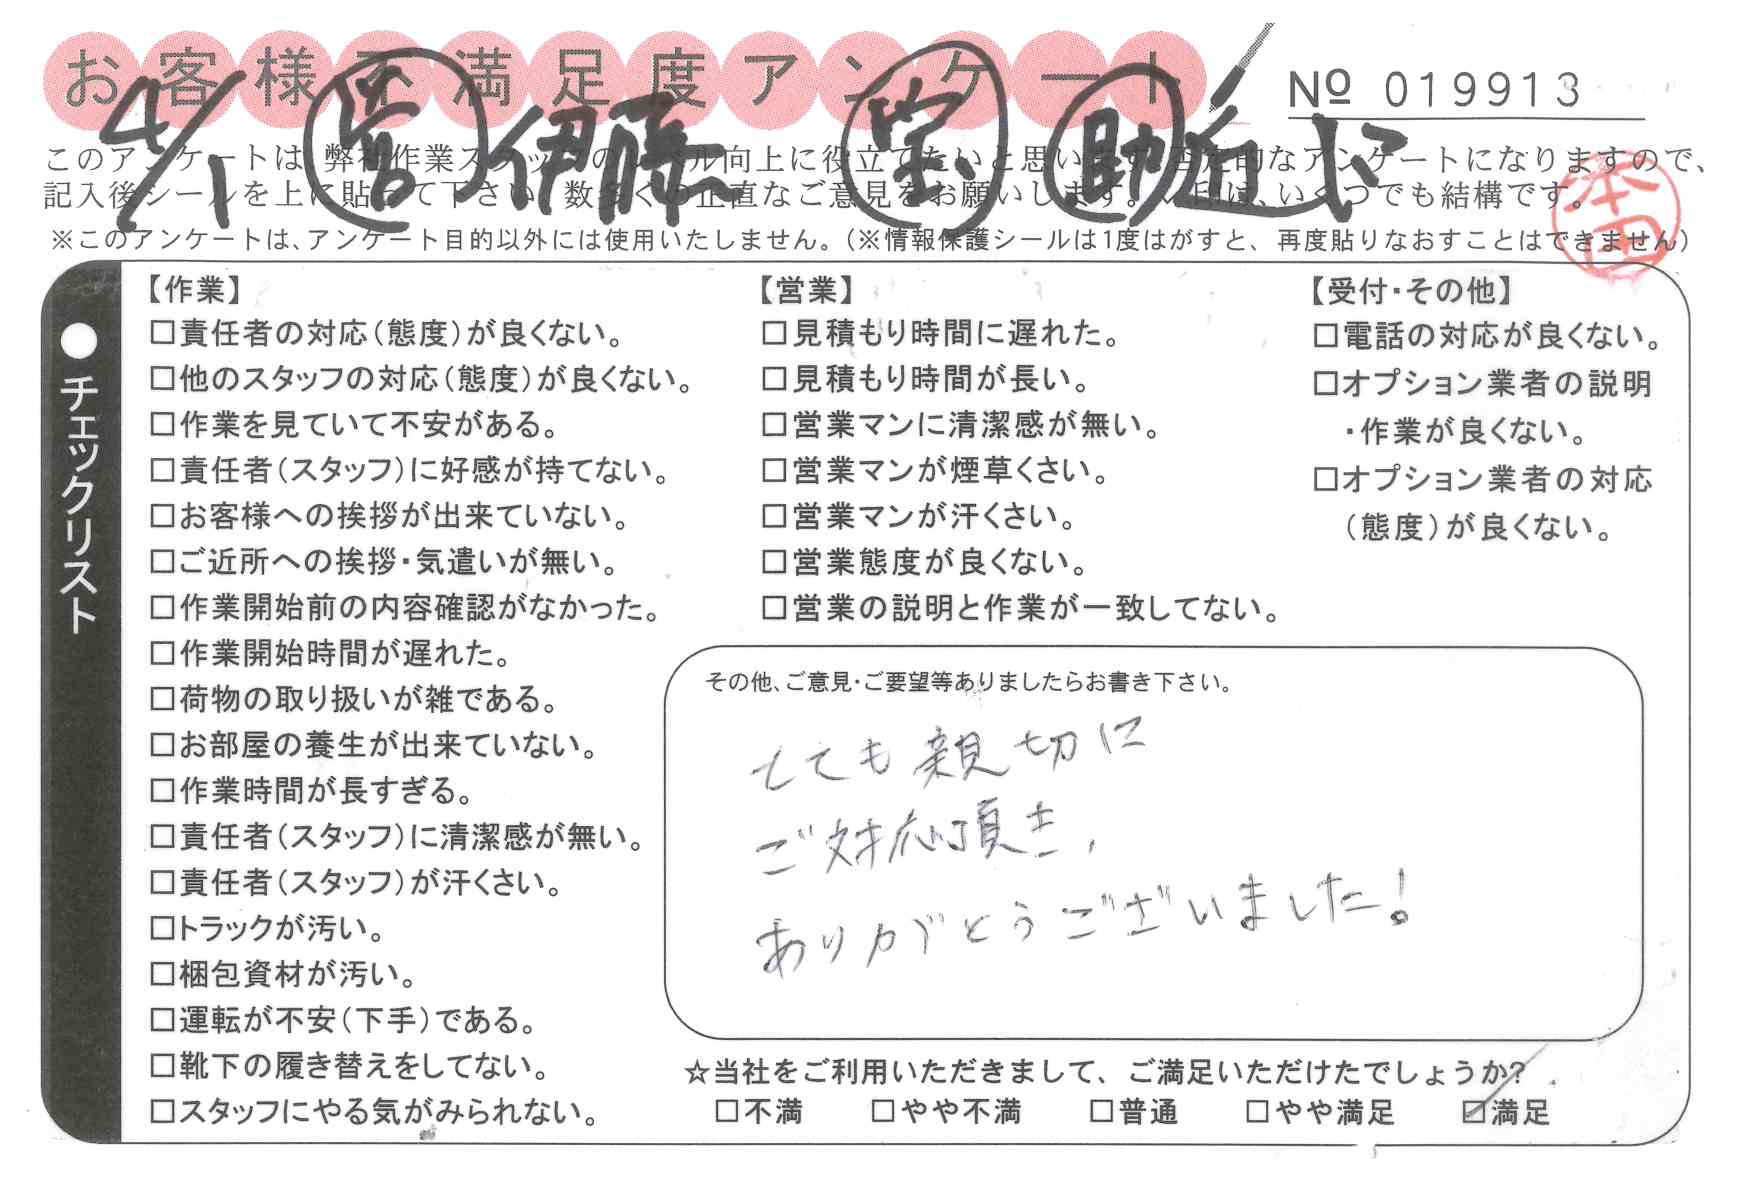 お客様不満足度アンケート
№ 019913
4/1 営 伊藤 宝 助 近
このアンケートは、弊社作業スタッフのレベル向上に役立てたいと思います。自主的なアンケートになりますので、
記入後シールを上に貼って下さい。数多くの正直なご意見をお願いします。✓印は、いくつでも結構です。
※このアンケートは、アンケート目的以外には使用いたしません。(※情報保護シールは1度はがすと、再度貼りなおすことはできません)
本田
●チェックリスト
【作業】
□責任者の対応(態度)が良くない。
□他のスタッフの対応(態度)が良くない。
□作業を見ていて不安がある。
□責任者(スタッフ)に好感が持てない。
□お客様への挨拶が出来ていない。
□ご近所への挨拶・気遣いが無い。
□作業開始前の内容確認がなかった。
□作業開始時間が遅れた。
□荷物の取り扱いが雑である。
□お部屋の養生が出来ていない。
□作業時間が長すぎる。
□責任者(スタッフ)に清潔感が無い。
□責任者(スタッフ)が汗くさい。
□トラックが汚い。
□梱包資材が汚い。
□運転が不安(下手)である。
□靴下の履き替えをしてない。
□スタッフにやる気がみられない。
【営業】
□見積もり時間に遅れた。
□見積もり時間が長い。
□営業マンに清潔感が無い。
□営業マンが煙草くさい。
□営業マンが汗くさい。
□営業態度が良くない。
□営業の説明と作業が一致してない。
【受付・その他】
□電話の対応が良くない。
□オプション業者の説明
・作業が良くない。
□オプション業者の対応
(態度)が良くない。
その他、ご意見・ご要望等ありましたらお書き下さい。
とても親切に
ご対応頂き、
ありがとうございました!
☆当社をご利用いただきまして、ご満足いただけたでしょうか?
□不満 □やや不満 □普通 □やや満足 ☑満足